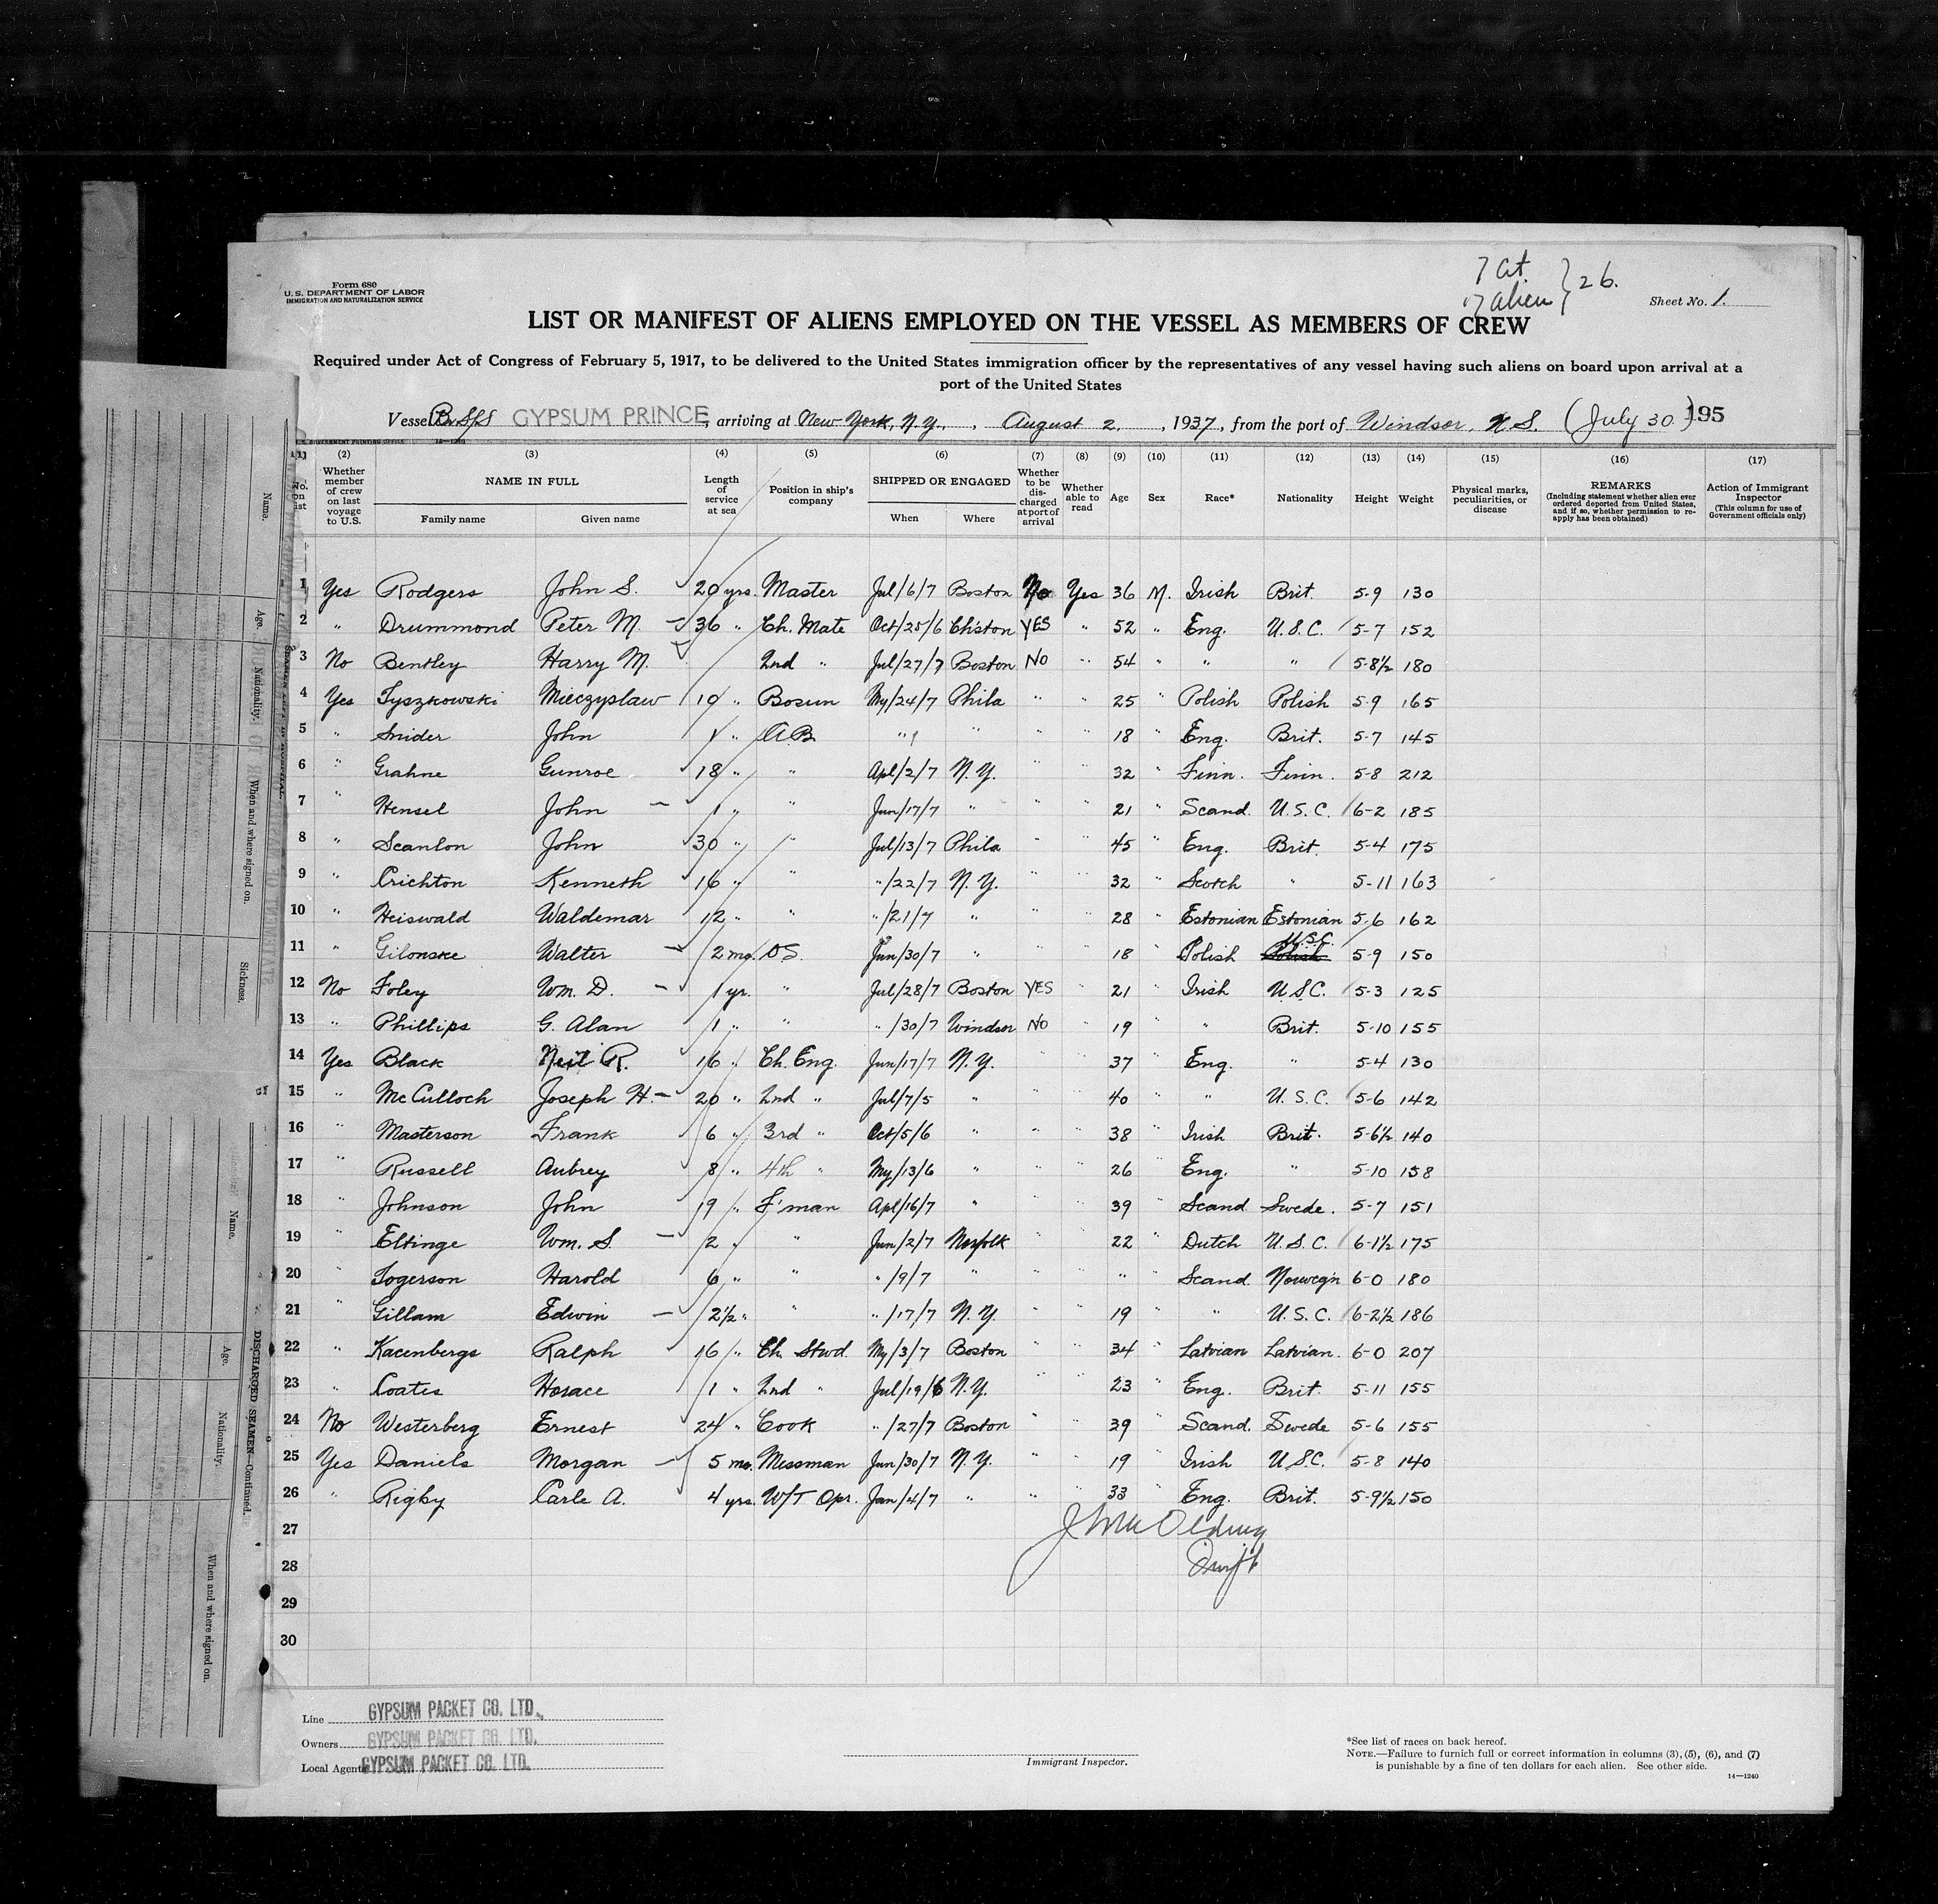 Form 680
U.S. DEPARTMENT OF LABOR
IMMIGRATION AND NATURALIZATION SERVICE
7 Cit
17 alien } 26.
Sheet No. 1.
LIST OR MANIFEST OF ALIENS EMPLOYED ON THE VESSEL AS MEMBERS OF CREW
Required under Act of Congress of February 5, 1917, to be delivered to the United States immigration officer by the representatives of any vessel having such aliens on board upon arrival at a
port of the United States
Vessel Br. S/S GYPSUM PRINCE, arriving at New York, N.Y., August 2, 1937, from the port of Windsor, N.S. (July 30) 195
U.S. GOVERNMENT PRINTING OFFICE 14—1240
(1) (2) (3) (4) (5) (6) (7) (8) (9) (10) (11) (12) (13) (14) (15) (16) (17)
No. on list
Whether member of crew on last voyage to U.S.
NAME IN FULL
Family name
Given name
Length of service at sea
Position in ship's company
SHIPPED OR ENGAGED
When
Where
Whether to be discharged at port of arrival
Whether able to read
Age
Sex
Race*
Nationality
Height
Weight
Physical marks, peculiarities, or disease
REMARKS
(Including statement whether alien ever ordered deported from United States, and if so, whether permission to reapply has been obtained)
Action of Immigrant Inspector
(This column for use of Government officials only)
1 Yes Rodgers John S. 20 yrs. Master Jul/6/7 Boston No Yes 36 M. Irish Brit. 5-9 130
2 " Drummond Peter M. — 36 " Ch. Mate Oct/25/6 Ch'ston YES " 52 " Eng. U.S.C. 5-7 152
3 No Bentley Harry M. 2nd " Jul/27/7 Boston NO " 54 " " " 5-8½ 180
4 Yes Tyszkowski Mieczyslaw 10 " Bosun My/24/7 Phila " " 25 " Polish Polish 5-9 165
5 " Snider John 1 " A.B. " " " " 18 " Eng. Brit. 5-7 145
6 " Grahne Gunroe 18 " " Apl/2/7 N.Y. " " 32 " Finn. Finn. 5-8 212
7 " Hensel John — 1 " " Jun/17/7 " " " 21 " Scand. U.S.C. 6-2 185
8 " Scanlon John 30 " " Jul/13/7 Phila " " 45 " Eng. Brit. 5-4 175
9 " Crichton Kenneth 16 " " " /22/7 N.Y. " " 32 " Scotch " 5-11 163
10 " Heiswald Waldemar 12 " " " /21/7 " " " 28 " Estonian Estonian 5-6 162
11 " Gilonske Walter — 2 mo. O.S. Jun/30/7 " " " 18 " Polish Polish U.S.C. 5-9 150
12 No Foley Wm. D. — 1 yr. " Jul/28/7 Boston YES " 21 " Irish U.S.C. 5-3 125
13 " Phillips G. Alan 1 " " " /30/7 Windsor NO " 19 " " Brit. 5-10 155
14 Yes Black Neil R. 16 " Ch. Eng. Jun/17/7 N.Y. " " 37 " Eng. " 5-4 130
15 " McCulloch Joseph H. — 20 " 2nd " Jul/7/5 " " " 40 " " U.S.C. 5-6 142
16 " Masterson Frank 6 " 3rd " Oct/5/6 " " " 38 " Irish Brit. 5-6½ 140
17 " Russell Aubrey 8 " 4th " My/13/6 " " " 26 " Eng. " 5-10 158
18 " Johnson John 19 " F'man Apl/16/7 " " " 39 " Scand. Swede. 5-7 151
19 " Eltinge Wm. S. — 2 " " Jun/2/7 Norfolk " " 22 " Dutch U.S.C. 6-1½ 175
20 " Togerson Harold 6 " " " /9/7 " " " " " Scand. Norweg'n 6-0 180
21 " Gillam Edwin — 2½ " " " /17/7 N.Y. " " 19 " " U.S.C. 6-2½ 186
22 " Kacenbergs Ralph 16 " Ch. Stwd. My/3/7 Boston " " 34 " Latvian Latvian. 6-0 207
23 " Coates Horace 1 " 2nd " Jul/19/6 N.Y. " " 23 " Eng. Brit. 5-11 155
24 No Westerberg Ernest 24 " Cook " /27/7 Boston " " 39 " Scand. Swede 5-6 155
25 Yes Daniels Morgan — 5 mo. Messman Jun/30/7 N.Y. " " 19 " Irish U.S.C. 5-8 140
26 " Rigby Carle A. 4 yrs. W/T Opr. Jan/4/7 " " " 33 " Eng. Brit. 5-9½ 150
27
28
29
30
Line GYPSUM PACKET CO. LTD.
Owners GYPSUM PACKET CO. LTD.
Local Agents GYPSUM PACKET CO. LTD.
Immigrant Inspector.
*See list of races on back hereof.
NOTE.—Failure to furnich full or correct information in columns (3), (5), (6), and (7)
is punishable by a fine of ten dollars for each alien. See other side.
14—1240
Name.
Age.
Nationality.
When and where signed on.
Sickness.
DISCHARGED SEAMEN—Continued.
Name.
Age.
Nationality.
When and where signed on.